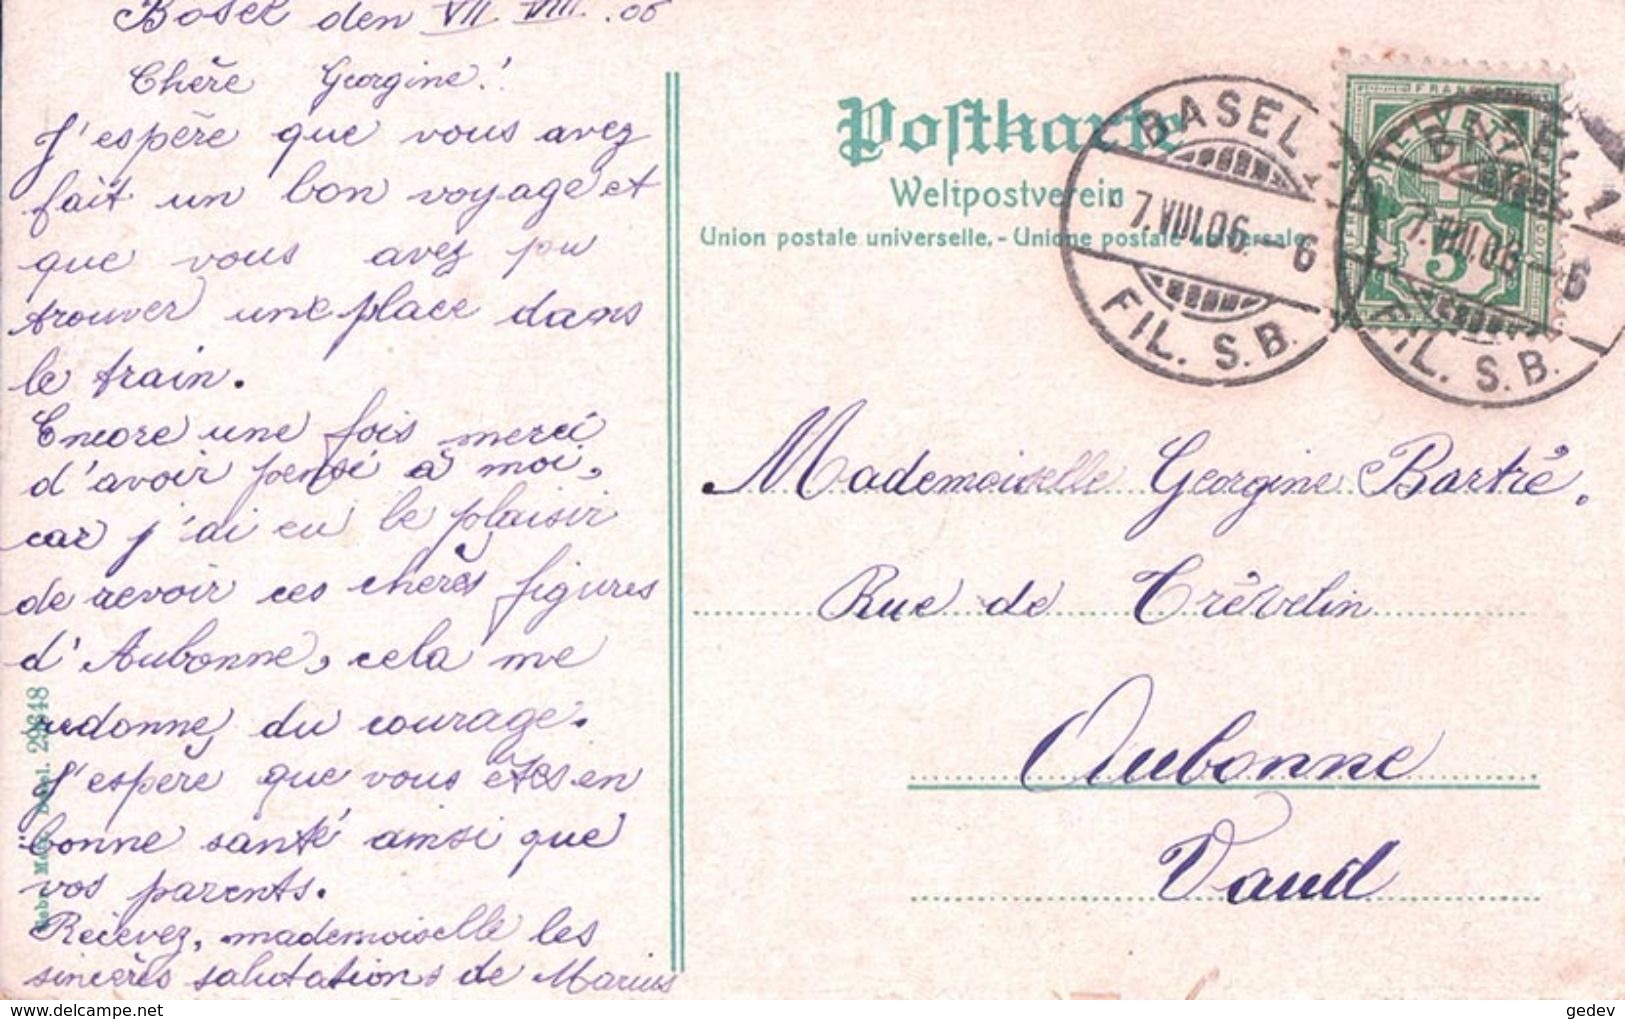 Basel den VII VIII .06
Chère Georgine!
J'espère que vous avez
fait un bon voyage et
que vous avez pu
trouver une place dans
le train.
Encore une fois merci
d'avoir pensé à moi,
car j'ai eu le plaisir
de revoir ces chères figures
d'Aubonne, cela me
redonne, du courage.
J'espère que vous êtes en
bonne santé ainsi que
vos parents.
Recevez, mademoiselle les
sincères salutations de Marius
Gebr. Metz, Basel. 29648
Postkarte
Weltpostverein
Union postale universelle. - Unione postale universale
BASEL 1
7.VIII.06.-6
FIL. S.B.
FRANCO
HELVETIA
5
7.VIII.06-6
FIL. S.B.
Mademoiselle Georgine Bartré.
Rue de Trévelin
Aubonne
Vaud
www.delcampe.net
gedev